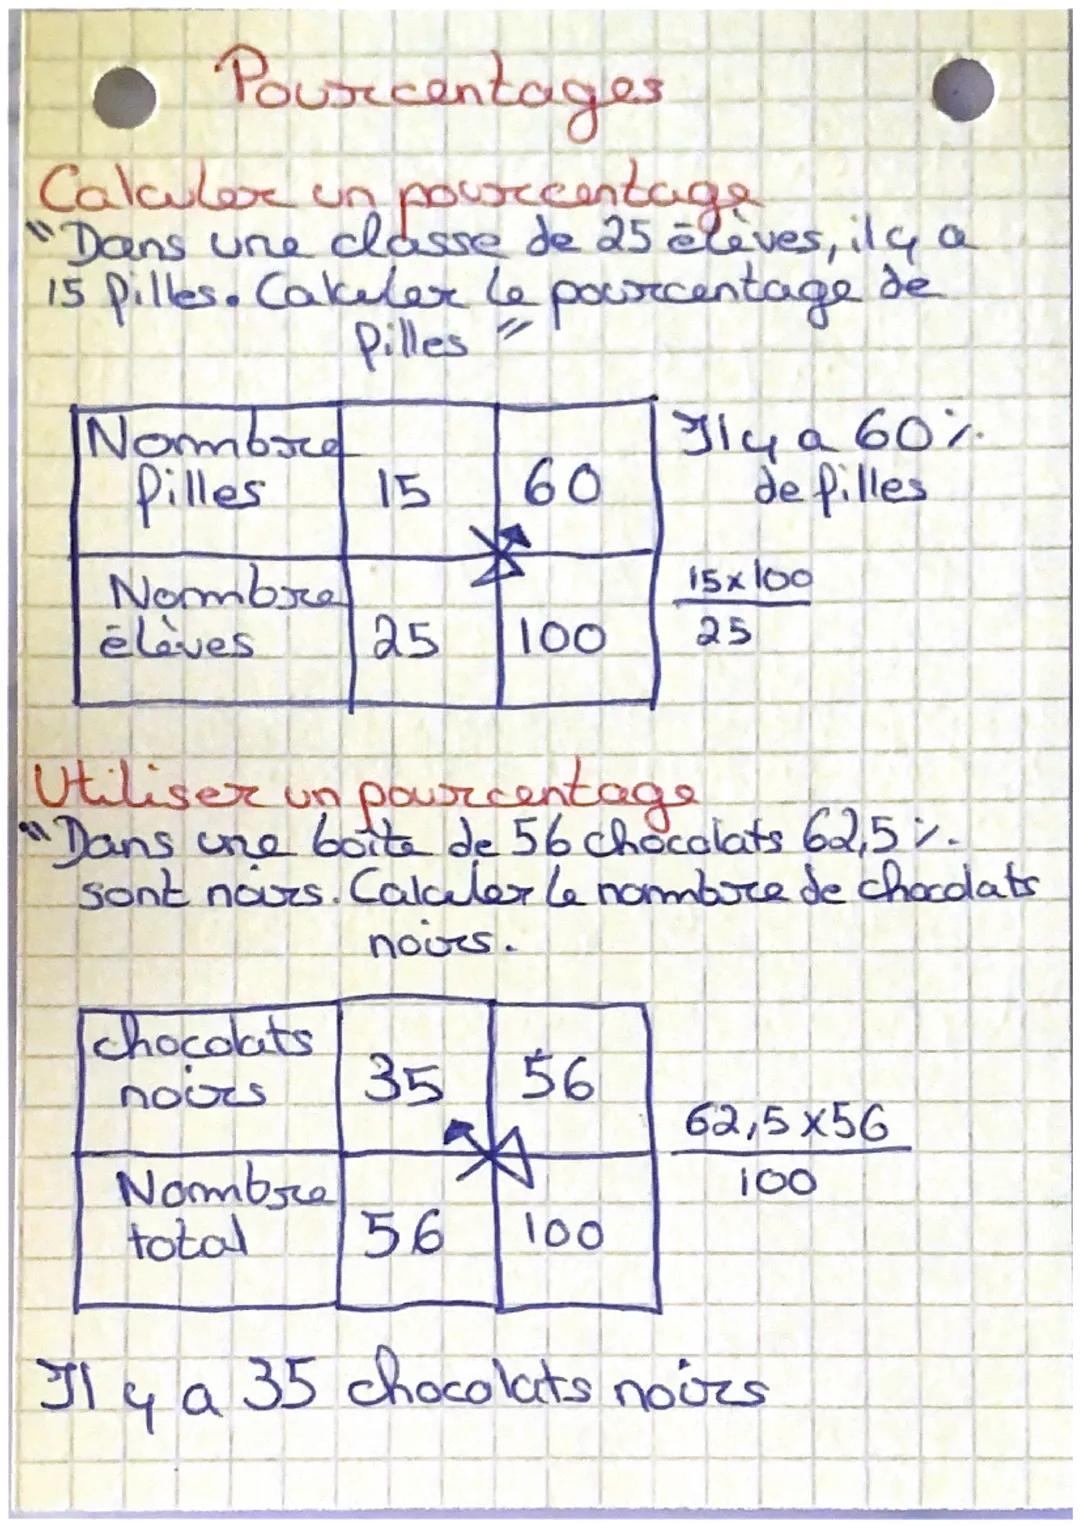 Pourcentages
Calculer un pourcentage
"Dans une classe de 25 élèves, il y a
15 filles. Calculer le pourcentage de
filles"
Nombre
filles
15
60
Il y a 60%
de filles
Nombre
élèves
25
100
15x100
25
Utiliser un pourcentage
"Dans une boîte de 56 chocolats 62,5%
sont noirs. Calculer le nombre de chocolats
noirs.
chocolats
noirs
35
56
62,5x56
100
Nombre
total
56
100
Il y a 35 chocolats noirs